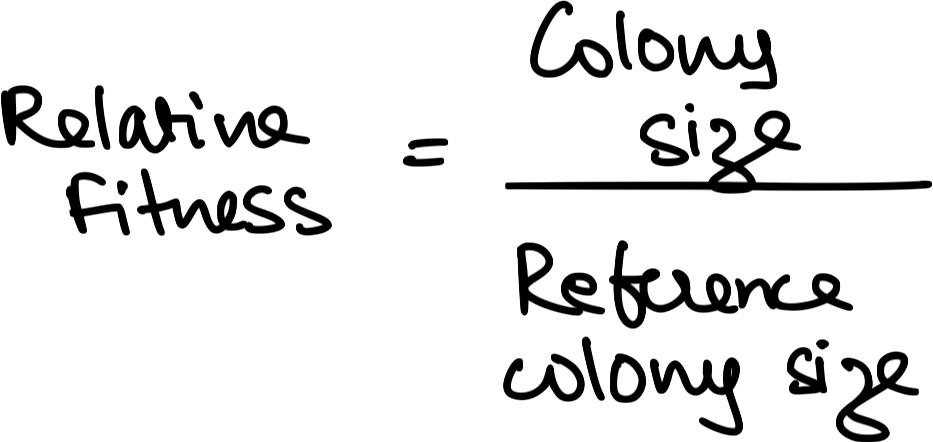 Relative
Fitness
=
Colony
size
Reference
colony size